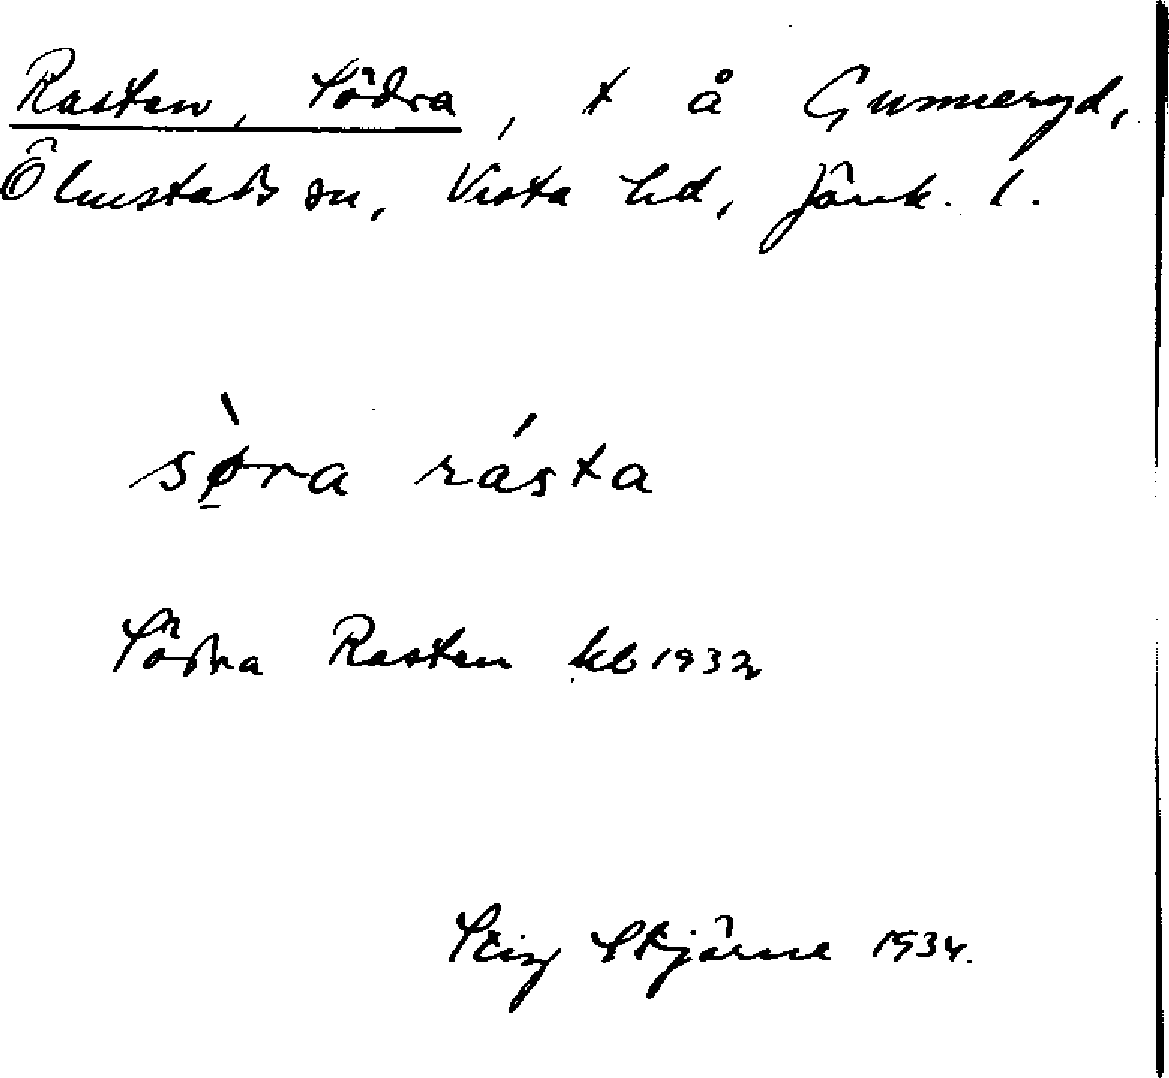 Rasten, Södra, t å Gunneryd,
Ölmstads sn, Vista hd, Jönk. l.
sø̀ra rásta
Södra Rasten kb 1932
Stig Stjärne 1934.